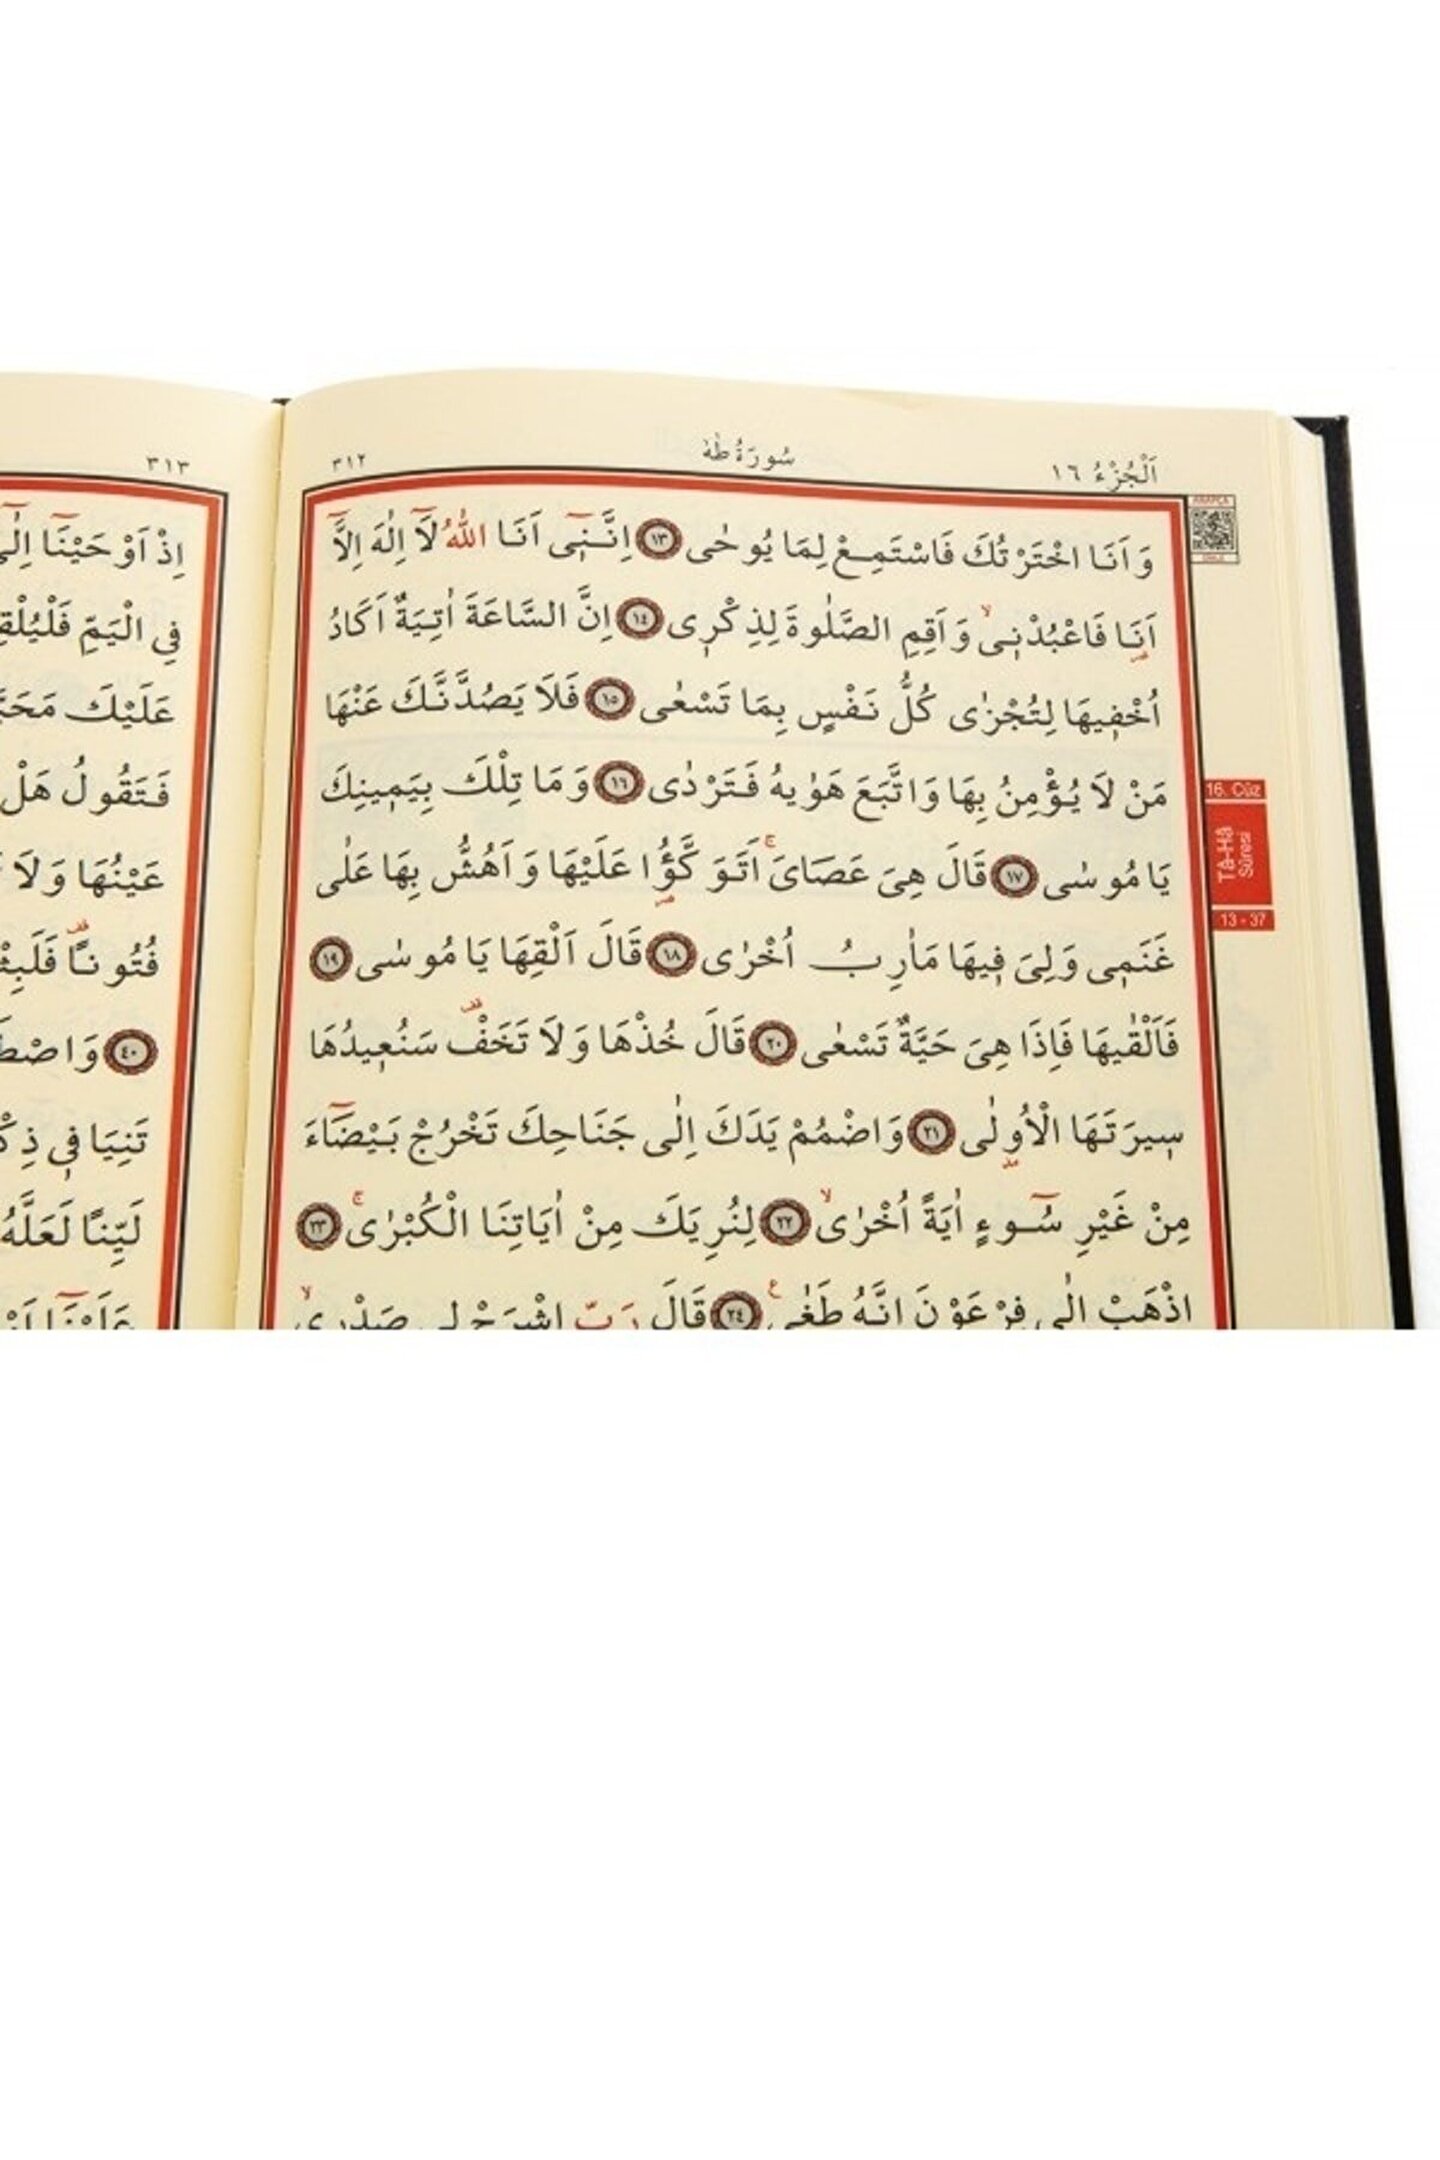 اَلْجُزْءُ ١٦
سُورَةُ طٰهٰ
٣١٢
وَاَنَا اخْتَرْتُكَ فَاسْتَمِعْ لِمَا يُوحٰى ﴿١٣﴾ اِنَّنٖٓى اَنَا اللّٰهُ لَٓا اِلٰهَ اِلَّٓا
اَنَا فَاعْبُدْنٖىۙ وَاَقِمِ الصَّلٰوةَ لِذِكْرٖى ﴿١٤﴾ اِنَّ السَّاعَةَ اٰتِيَةٌ اَكَادُ
اُخْفٖيهَا لِتُجْزٰى كُلُّ نَفْسٍ بِمَا تَسْعٰى ﴿١٥﴾ فَلَا يَصُدَّنَّكَ عَنْهَا
مَنْ لَا يُؤْمِنُ بِهَا وَاتَّبَعَ هَوٰيهُ فَتَرْدٰى ﴿١٦﴾ وَمَا تِلْكَ بِيَمٖينِكَ
يَا مُوسٰى ﴿١٧﴾ قَالَ هِىَ عَصَاىَۚ اَتَوَكَّؤُ۬ا عَلَيْهَا وَاَهُشُّ بِهَا عَلٰى
غَنَمٖى وَلِىَ فٖيهَا مَاٰرِبُ اُخْرٰى ﴿١٨﴾ قَالَ اَلْقِهَا يَا مُوسٰى ﴿١٩﴾
فَاَلْقٰيهَا فَاِذَا هِىَ حَيَّةٌ تَسْعٰى ﴿٢٠﴾ قَالَ خُذْهَا وَلَا تَخَفْ۠ سَنُعٖيدُهَا
سٖيرَتَهَا الْاُو۫لٰى ﴿٢١﴾ وَاضْمُمْ يَدَكَ اِلٰى جَنَاحِكَ تَخْرُجْ بَيْضَٓاءَ
مِنْ غَيْرِ سُٓوءٍ اٰيَةً اُخْرٰىۙ ﴿٢٢﴾ لِنُرِيَكَ مِنْ اٰيَاتِنَا الْكُبْرٰىۚ ﴿٢٣﴾
اِذْهَبْ اِلٰى فِرْعَوْنَ اِنَّهُ طَغٰى ﴿٢٤﴾ قَالَ رَبِّ اشْرَحْ لٖى صَدْرٖىۙ
16. Cüz
Tâ-Hâ
Sûresi
13 - 37
٣١٣
اِذْ اَوْحَيْنَٓا اِلٰٓى
فِى الْيَمِّ
عَلَيْكَ
فَتَقُولُ هَلْ
عَيْنُهَا وَلَا
فُتُونًا
﴿٤٠﴾
تَنِيَا فٖى
لَيِّنًا لَعَلَّهُ
عَلَيْنَٓا